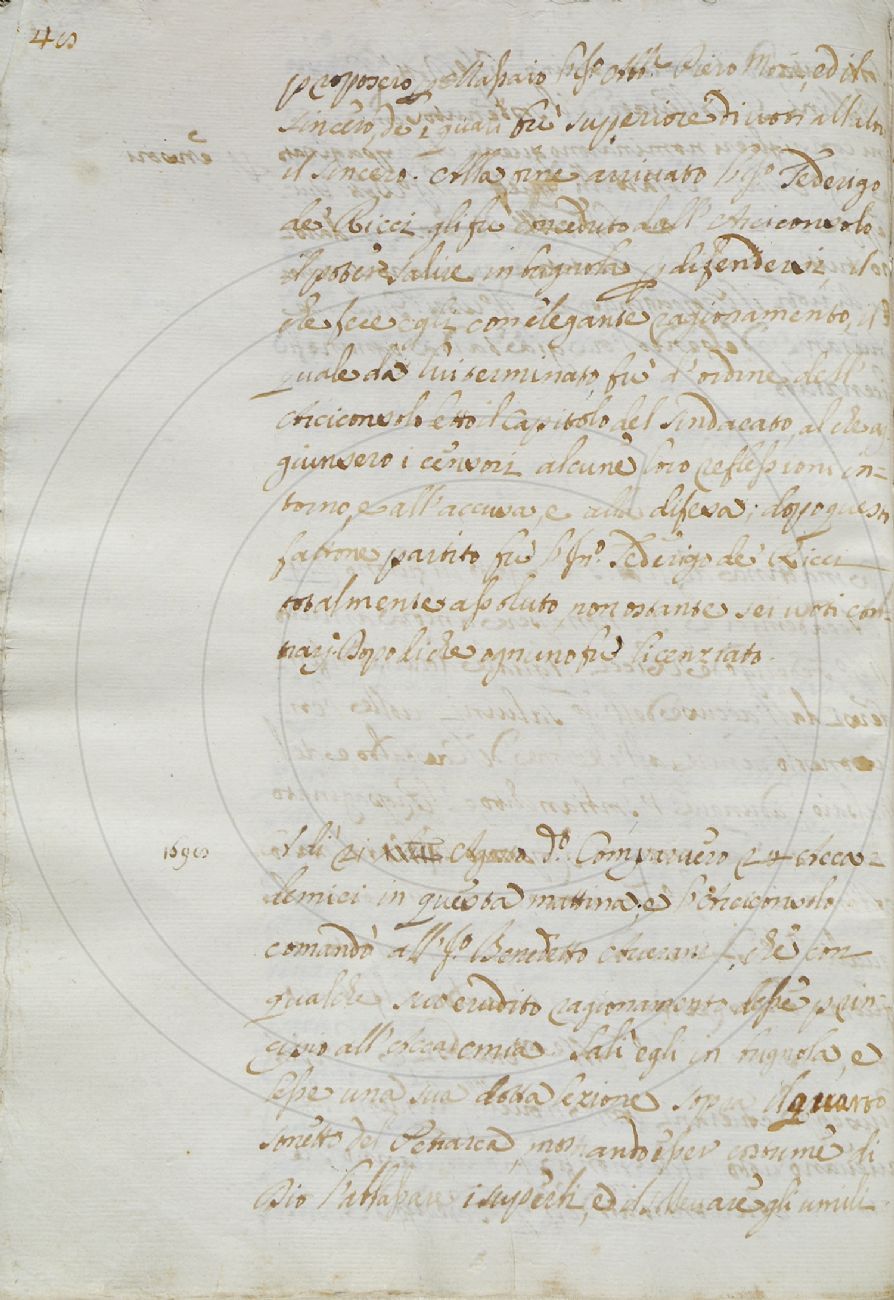 46
proposero p Massaio l'Ill.mo Piero Mozzi, ed il
Sincero, de' i quali fu superiore di voti all'altro
il Sincero. Alla fine arrivato l'Ill.o Federigo
de' Ricci gli fu conceduto dall'Arciconsolo
il potere salire in bugnola p difendersi, il
che fece egli con elegante ragionamento, il
quale da lui terminato, fu d'ordine dell'
Arciconsolo letto il Capitolo del sindacato, al che ag
giunsero i censori alcune loro reflessioni in=
torno, e all'accusa, e alla difesa; dopo questo
fattone partito fu l'Ill.o Federigo de' Ricci
totalmente assoluto non ostante sei voti con
trarj. Dopo di che ognuno fu licenziato.
1696
A dì 21 Agosto d.o Comparvero 24 Acca=
demici in questa mattina, e l'Arciconsolo
comandò all'Ill.o Benedetto Averani, che con
qualche suo erudito ragionamento desse prin=
cipio all'Accademia. Salì egli in bugnola, e
lesse una sua dotta lezione sopra il quarto
sonetto del Petrarca, mostrando esser costume di
Dio l'abbassare i superbi, ed il sollevare gli umili.